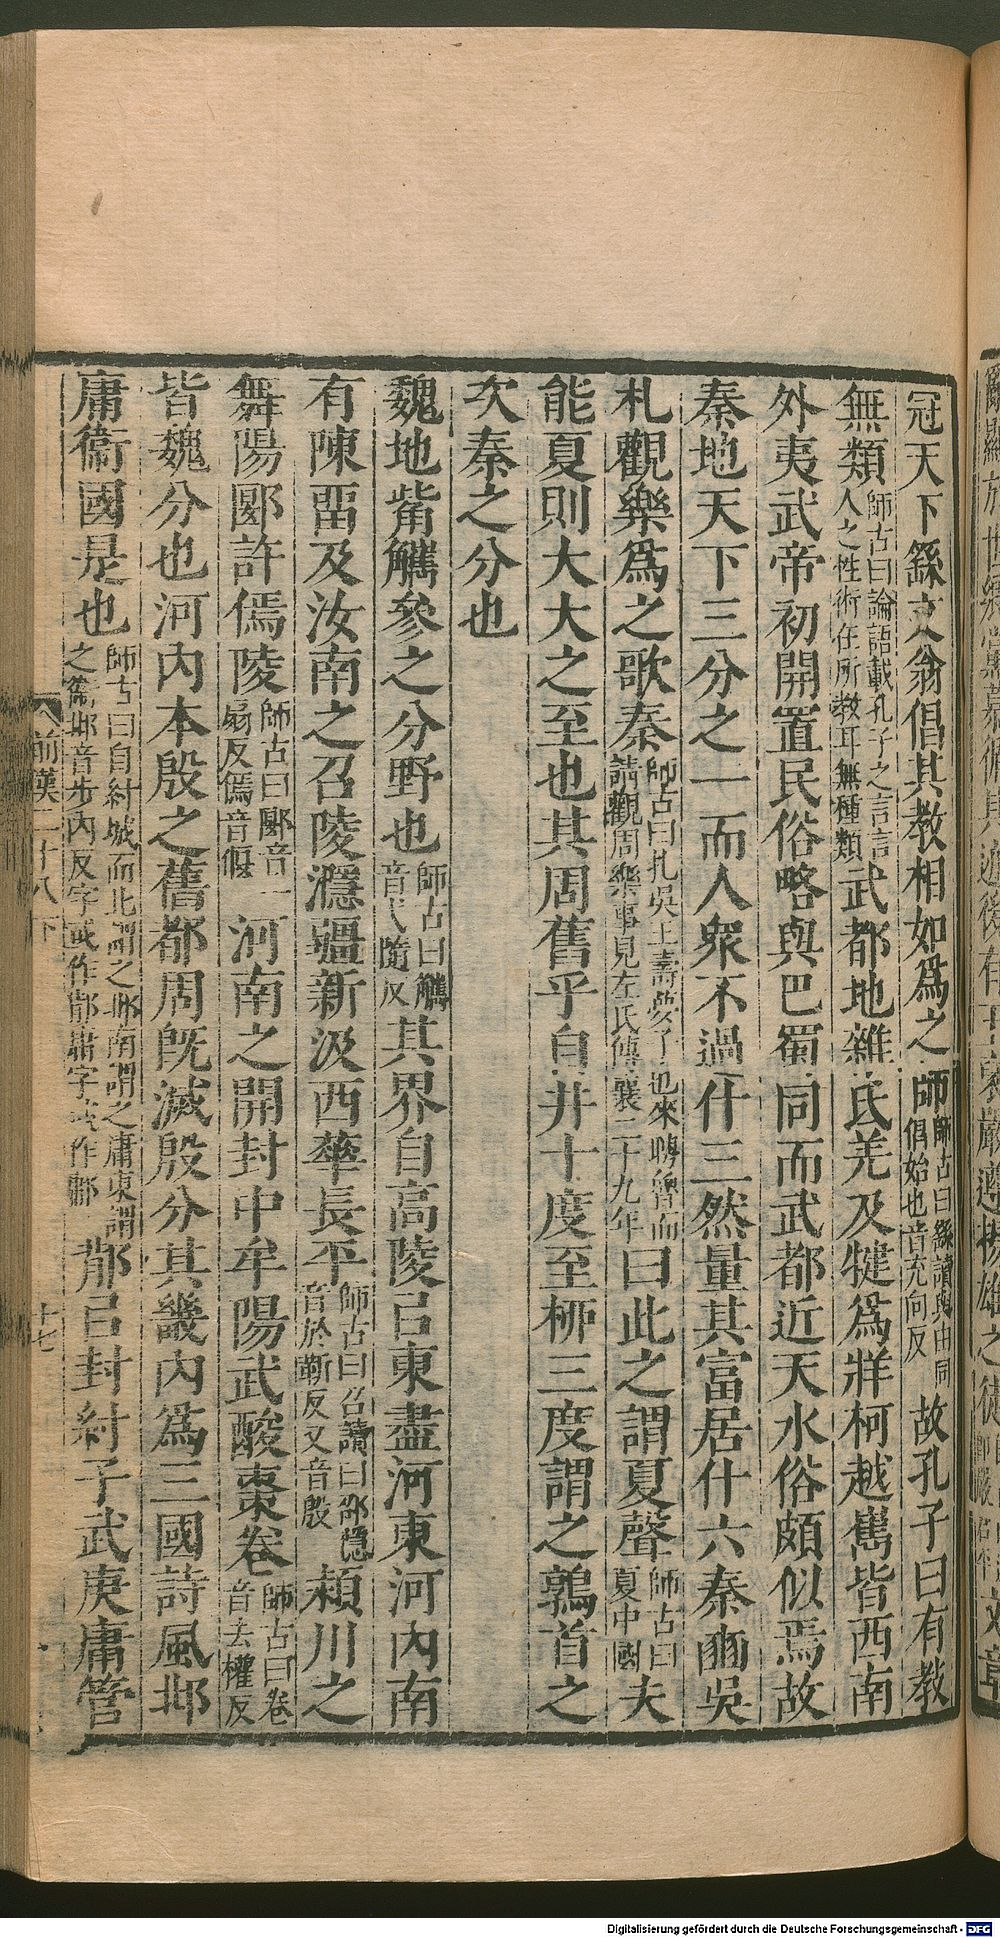 冠天下繇文翁倡其教相如爲之師師古曰繇讀與由同倡始也音充向反故孔子曰有教
無類師古曰論語載孔子之言言人之性術在所教耳無種類武都地雜氐羌及犍爲牂柯越嶲皆西南
外夷武帝初開置民俗略與巴蜀同而武都近天水俗頗似焉故
秦地天下三分之一而人衆不過什三然量其富居什六秦豳吳
札觀樂爲之歌秦師古曰札吳王壽夢子也來聘魯而請觀周樂事見左氏傳襄二十九年曰此之謂夏聲師古曰夏中國夫
能夏則大大之至也其周舊乎自井十度至柳三度謂之鶉首之
次秦之分也
魏地觜觿參之分野也師古曰觿音弋隨反其界自高陵㠯東盡河東河內南
有陳畱及汝南之召陵㶏彊新汲西華長平師古曰召讀曰邵㶏音於靳反又音殷潁川之
舞陽郾許傿陵師古曰郾音一扇反傿音偃河南之開封中牟陽武酸棗卷師古曰卷音去權反
皆魏分也河內本殷之舊都周旣滅殷分其畿內爲三國詩風邶
庸衞國是也師古曰自紂城而北謂之邶南謂之庸東謂之衞邶音步內反字或作鄁庸字或作鄘鄁㠯封紂子武庚庸管
前漢二十八下
十七
Digitalisierung gefördert durch die Deutsche Forschungsgemeinschaft - DFG